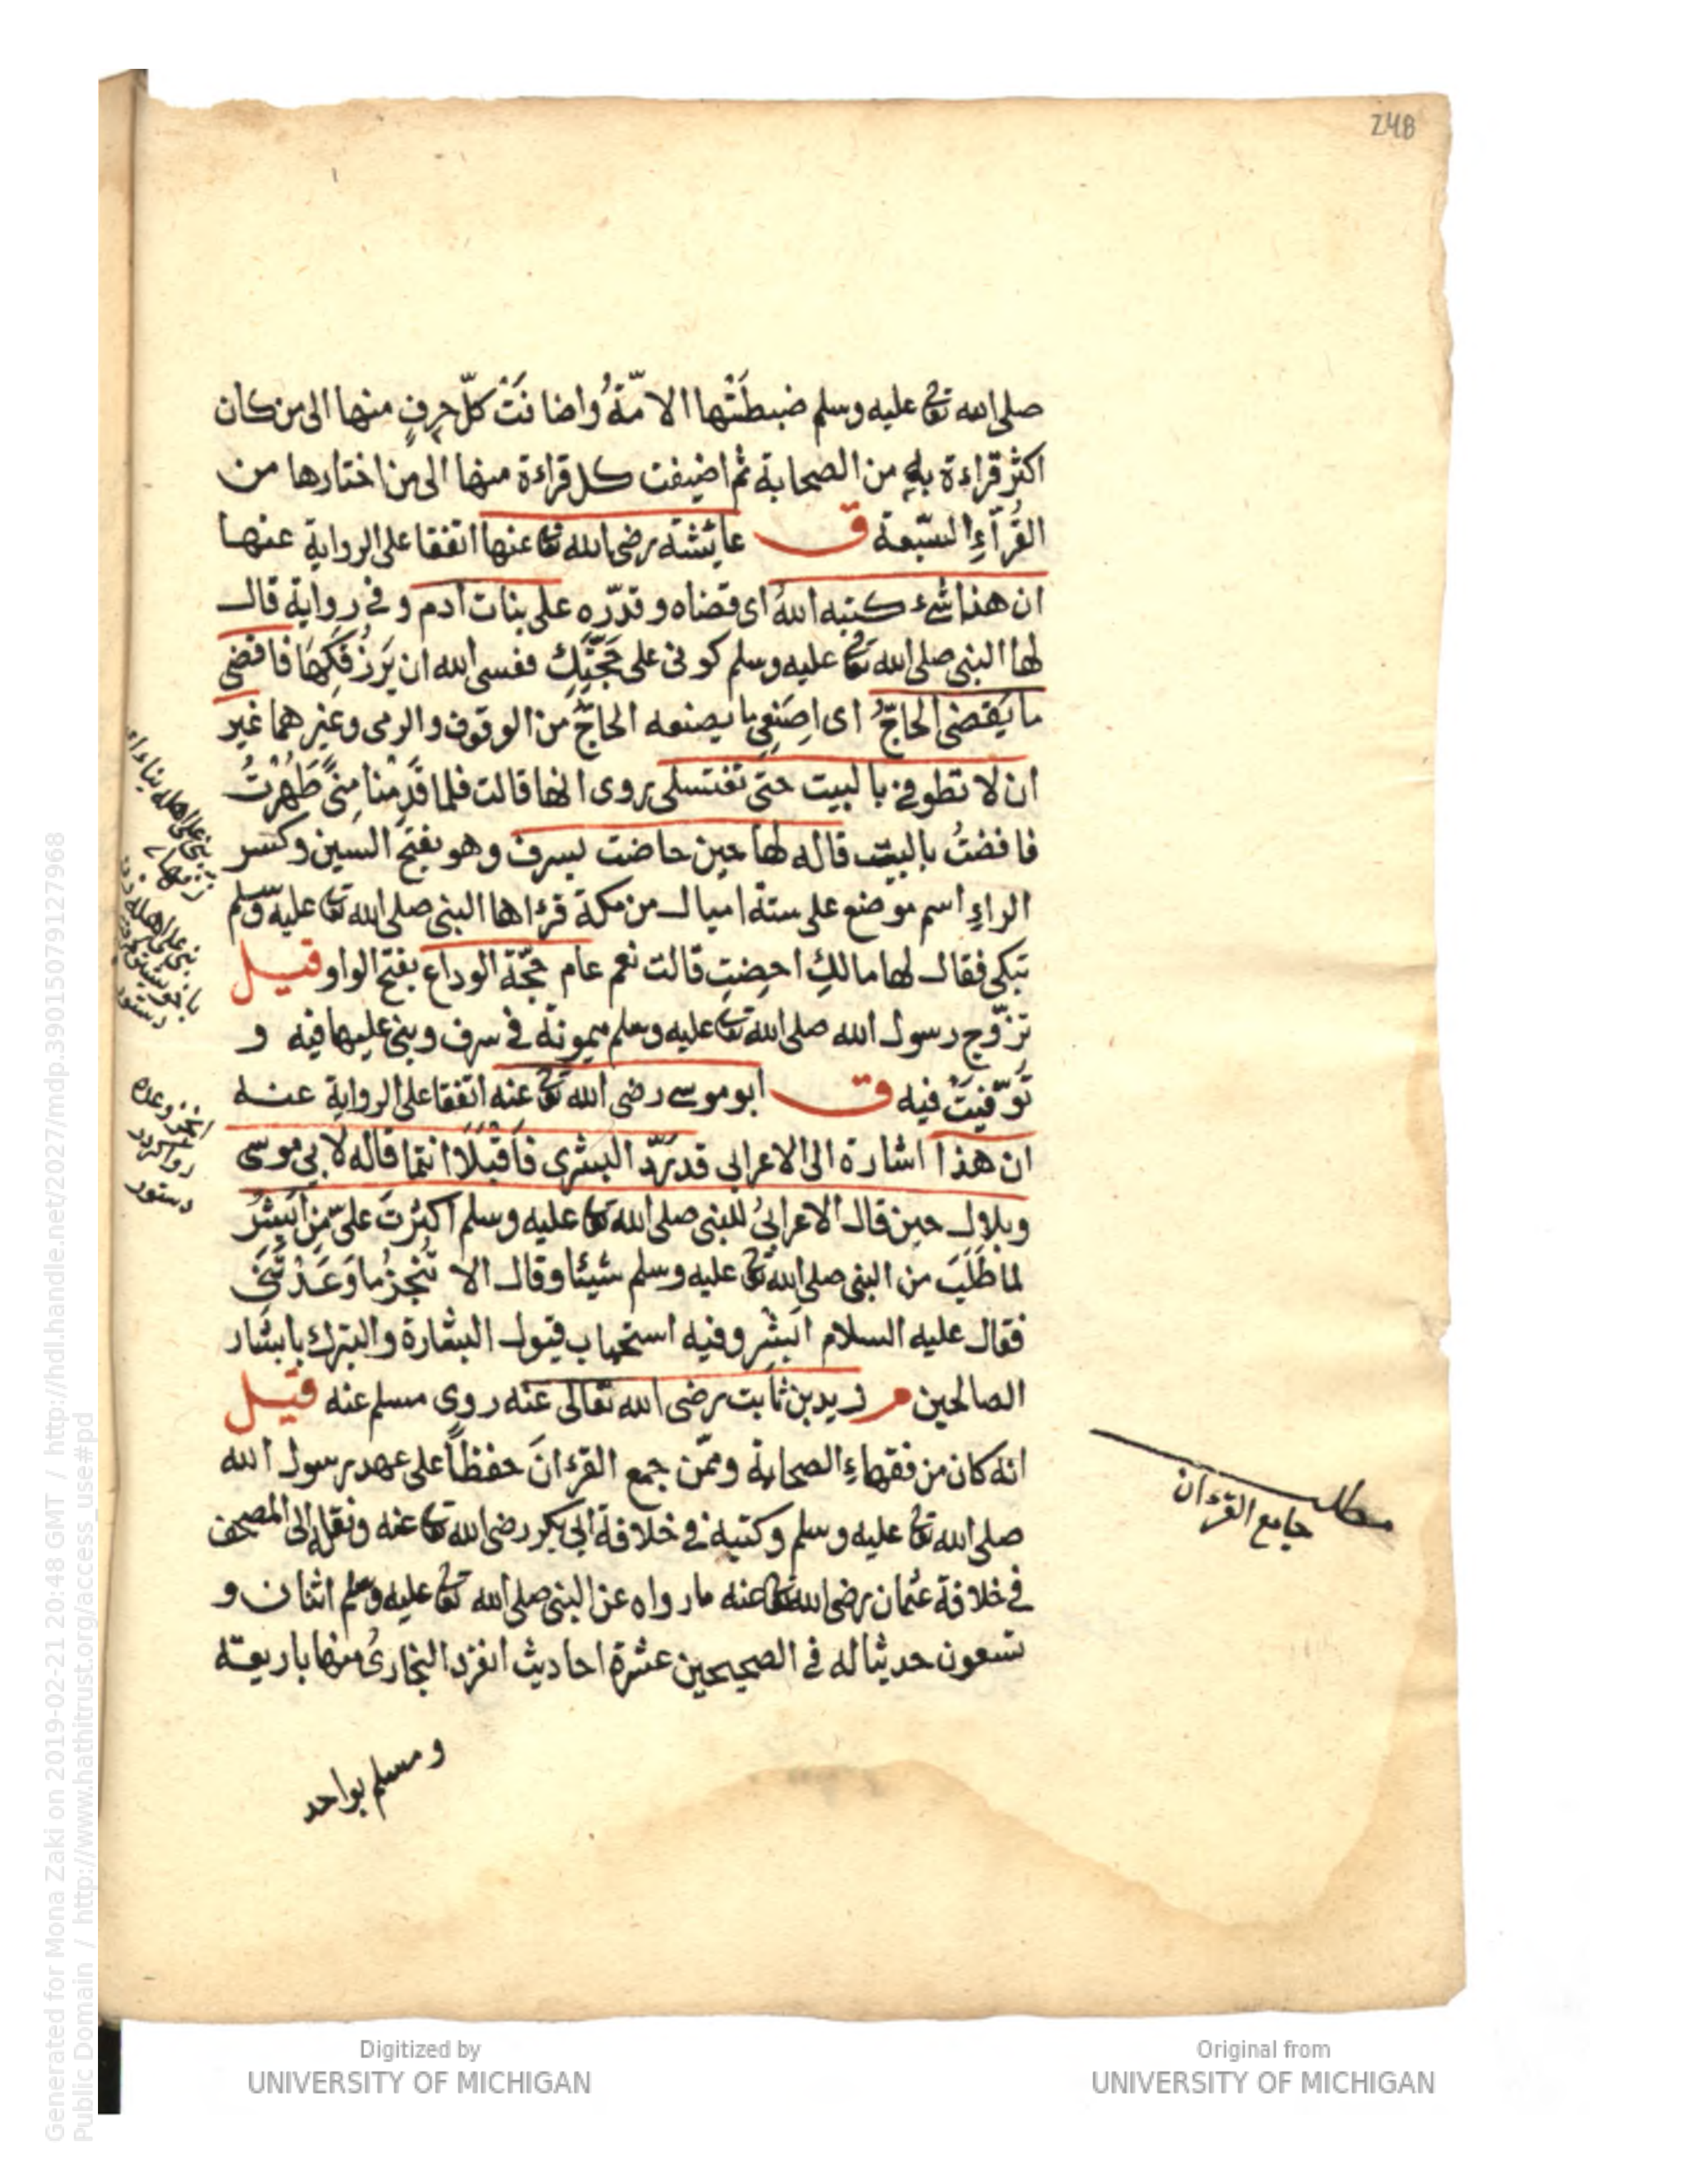 248
صلى الله تعالى عليه وسلم ضبطَتْها الامّةُ واضافَتْ كلّ حرفٍ منها الى من كان
اكثر قراءة به من الصحابة ثم اضيفت كل قراءة منها الى من اختارها من
القُرّاءِ السّبعة ق عايشة رضى الله تعالى عنها اتفقا على الرواية عنها
ان هذا شئ كتبه اللهُ اى قضاه وقدّره على بنات آدم وفى رواية قال
لها النبى صلى الله تعالى عليه وسلم كونى على حَجّتِكِ فعسى الله ان يَرزُقَكِهَا فاقضى
ما يَقضى الحاجّ اى اصنَعِى ما يصنعه الحاجّ من الوقوف والرمى وغيرهما غير
ان لا تطوفى بالبيت حتى تغتسلى روى انها قالت فلما قَدِمْنا مِنًى طَهُرْتُ
فافضتُ بالبيت قاله لها حين حاضت بسرف وهو بفتح السين وكسر
الراءِ اسم موضع على ستة اميال من مكة قرءاها النبى صلى الله تعالى عليه وسلم
تبكى فقال لها مالكِ احِضتِ قالت نعم عام حجّة الوداع بفتح الواو قيل
تزوّج رسول الله صلى الله تعالى عليه وسلم ميمونة فى سرف وبنى عليها فيه و
تُوفّيَتْ فيه ق ابو موسى رضى الله تعالى عنه اتفقا على الرواية عنه
ان هذا اشارة الى الاعرابى قد رَدّ البشرى فاَقبَلَا انتما قاله لابى موسى
وبلال حين قال الاعرابىُ للنبى صلى الله تعالى عليه وسلم اكثرتَ علىّ من اَبْشِرْ
لما طَلَبَ من النبى صلى الله تعالى عليه وسلم شيئا وقال الا تُنْجِزُ ما وَعَدْتَنِى
فقال عليه السلام اَبْشِرْ وفيه استحباب قبول البشارة والتبرك بابشار
الصالحين م زيد بن ثابت رضى الله تعالى عنه روى مسلم عنه قيل
انه كان من فقهاءِ الصحابة وممّن جمع القرءانَ حفظاً على عهد رسول الله
صلى الله تعالى عليه وسلم وكتبه فى خلافة ابى بكر رضى الله تعالى عنه ونقله الى المصحف
فى خلافة عثمان رضى الله تعالى عنه مارواه عن النبى صلى الله تعالى عليه وسلم اثنان و
تسعون حديثا له فى الصحيحين عشرة احاديث انفرد البخارىُ منها باربعة
ومسلم بواحد
مطلب
جامع القرءان
بنى على اهله بناء
زفها
بنى على اهله
دستور
انجز وعده
روا كردد
دستور
Generated for Mona Zaki on 2019-02-21 20:48 GMT / http://hdl.handle.net/2027/mdp.39015079127968
Public Domain / http://www.hathitrust.org/access_use#pd
Digitized by
UNIVERSITY OF MICHIGAN
Original from
UNIVERSITY OF MICHIGAN